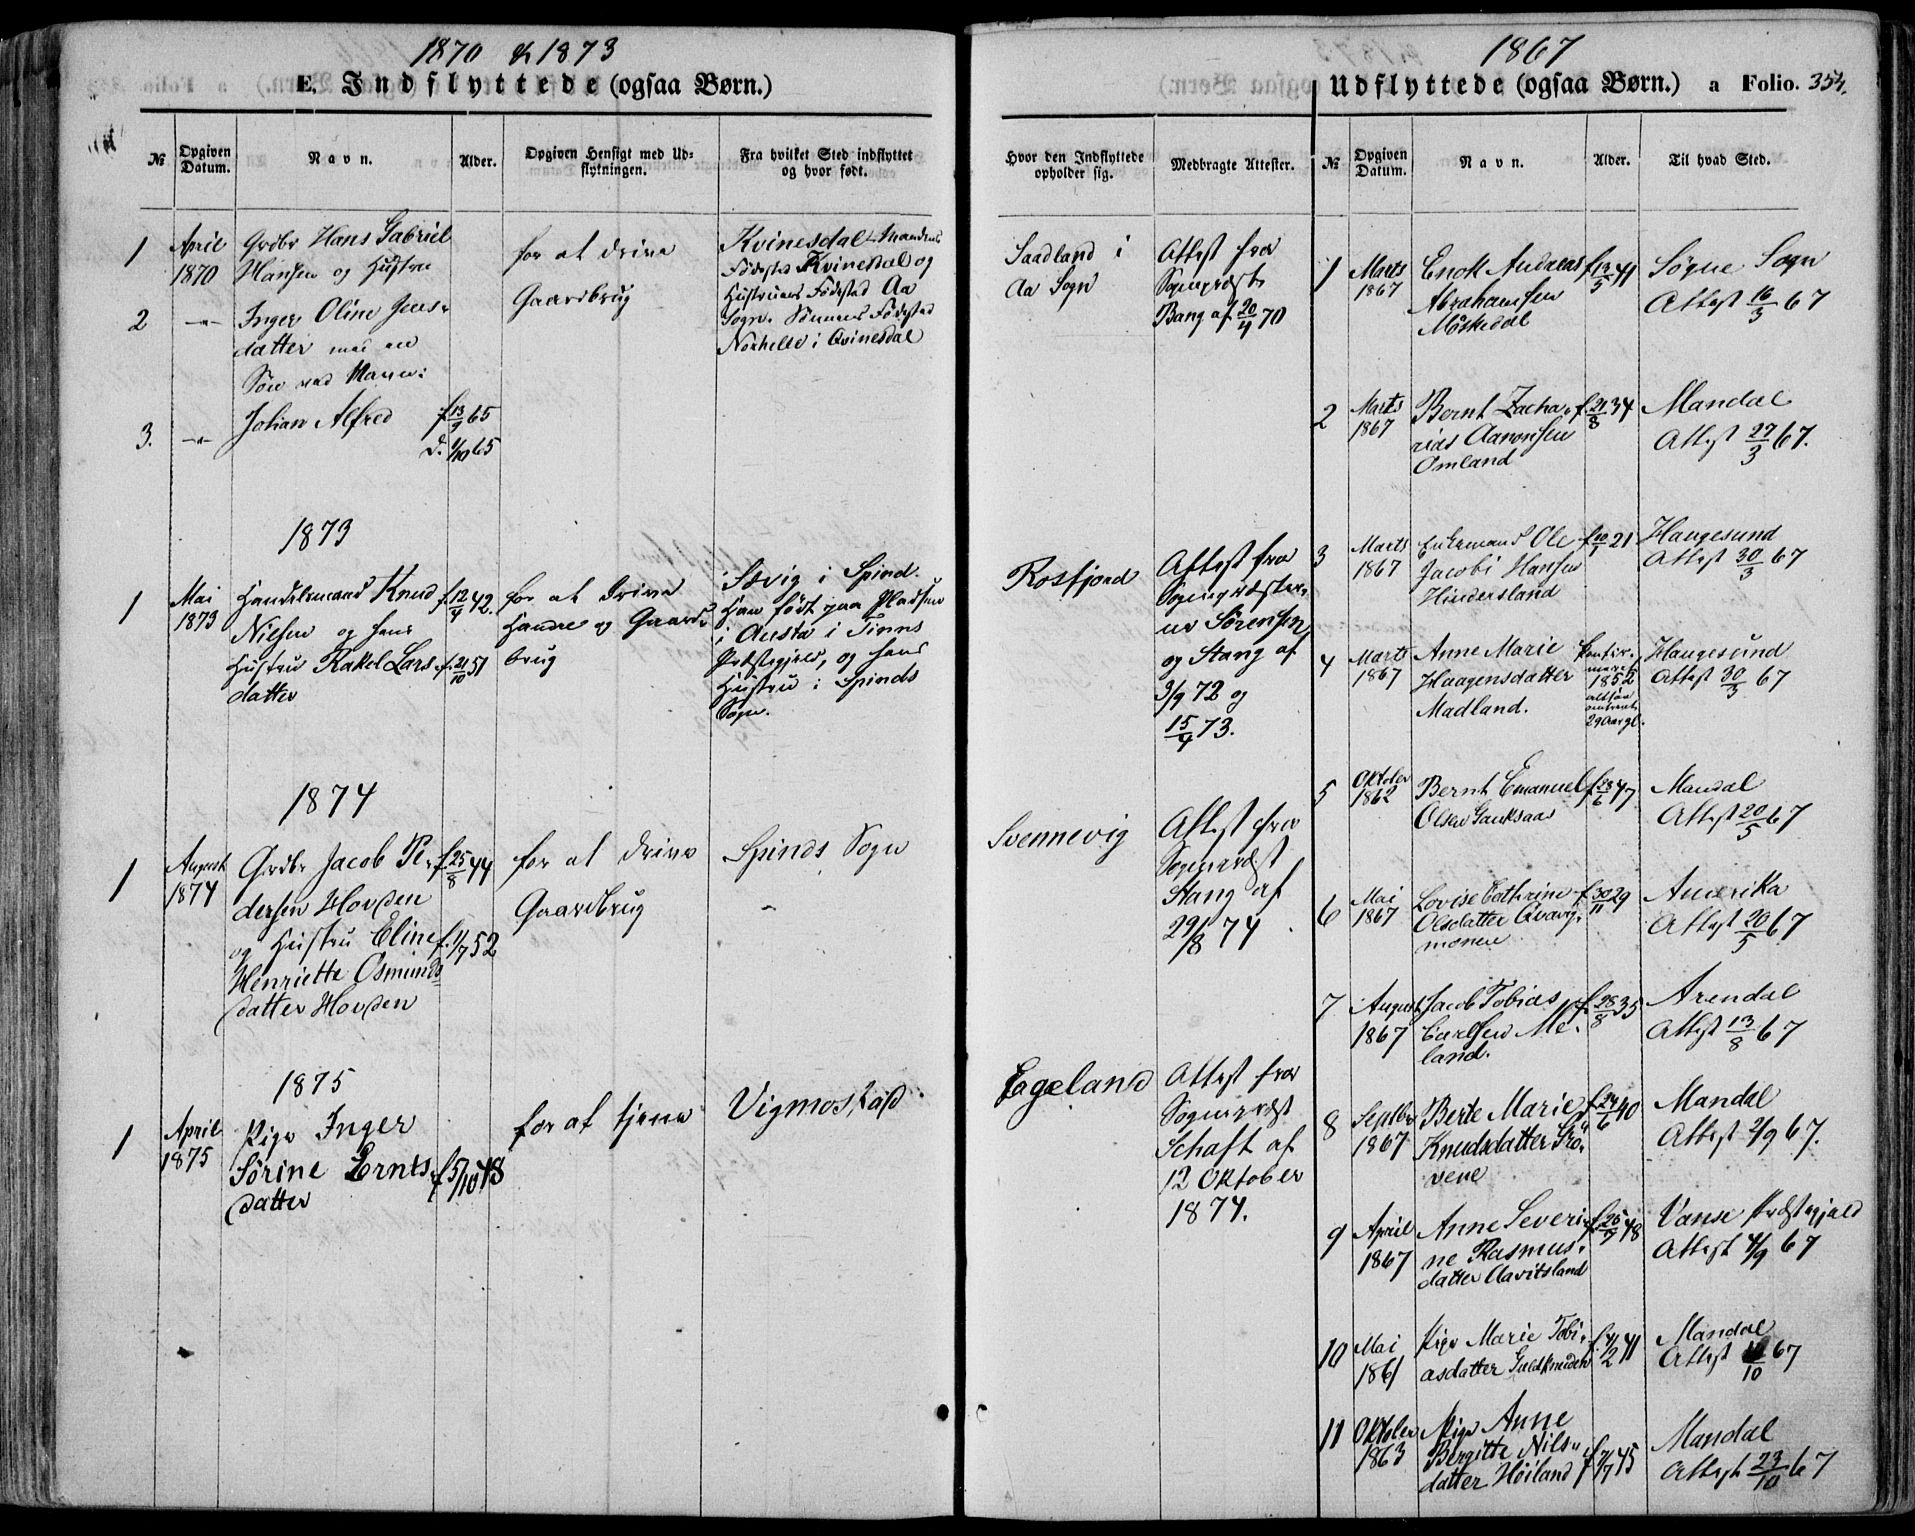 1870 & 1873
E. Indflyttede (ogsaa Børn.)
№
Opgiven Datum.
Navn.
Alder.
Opgiven Hensigt med Udflytningen.
Fra hvilket Sted indflyttet og hvor født.
1
April
1870
Grdbr Hans Gabriel
Hansen og Hustru
for at drive
Gaardbrug
Kvinesdal. Mandens
Fødested Kvinesdal og
Hustruens Fødestad Aa
Sogn. Sønnens Fødestad
i Qvinesdal
2
-"-
Inger Oline Jens-
datter med en
Søn ved Navn:
3.
-"-
Johan Alfred
f. 13/9 65
d. 1/10 65
1873
1
Mai
1873
Handelsmand Knud
Nielsen og hans
Hustru Rakel Lars
datter
f. 12/4 42.
f. 21/10 51
for at drive
Handel og Gaards
brug
Sævig i Spind.
Han født paa Pladsen
i Austa i Tinns
Præstegjeld, og hans
Hustru i Spinds
Sogn.
1874
1
August
1874
Grdbr Jacob Pe-
dersen Hovden
og Hustru Eline
Henriette Osmunds
datter Hovden
f. 25/8 44
f. 1/7 52
for at drive
Gaardbrug
Spinds Sogn
-
1875
1
April
1875
Pige Inger
Sørine Ernts
datter
f. 5/10 48
for at tjene
Vigmostad
1867
Udflyttede (ogsaa Børn.) a Folio. 354.
Hvor den Indflyttede opholder sig.
Medbragte Attester.
№
Opgiven Datum.
Navn.
Alder.
Til hvad Sted.
Saadland i
Aa Sogn
Attest fra
Sognepræst
Bang af 20/4 70
Rosfjord
Attest fra
Sognepræster-
ne Sørensen
og Stang af
3/9 72 og
15/4 73.
Svennevig
Attest fra
Sognepræst
Stang af
29/8 74
Egeland
Attest fra
Sognepræst
Schaft af
12 Oktober
1874.
1
Marts
1867
Enok Andreas
Abrahamsen
Møskedal
f. 13/5 41
Søgne Sogn
Attest 16/3 67
2
Marts
1867
Bernt Zacha-
rias Aanonsen
Omland
f. 21/8 34
Mandal
Attest 27/3 67.
3
Marts
1867
Enkemand Ole
Jacobi Hansen
Hindersland
f. 10/1 21
Haugesund
Attest 30/3 67
4
Marts
1867
Anne Marie
Haagensdatter
Madland.
Konfir-
meret
1852
altsaa
omtrent
29 Aar gl.
Haugesund
Attest 30/3 67
5
Oktober
1862
Bernt Emanuel
Olsen Gauksaas
f. 23/6 47
Mandal
Attest 20/5 67
6
Mai
1867
Lovise Cathrine
Olsdatter Qvavig-
monen
f. 30/11 29
Amerika
Attest 20/5 67
7
August
1867
Jacob Tobias
Carlsen Me-
land.
f. 28/8 35
Arendal
Attest 13/8 67
8
Septbr
1867
Berte Marie
Knudsdatter Frø-
vene
f. 24/6 40
Mandal
Attest 2/9 67.
9
April
1867
Anne Severi-
ne Rasmus-
datter Aavitsland
f. 25/9 48
Vanse Præstegjæld
Attest 4/9 67
10
Mai
1861
Pige Marie Tobi-
asdatter
f. 4/2 41
Mandal
Attest /10 67
11
Oktober
1863
Pige Anne
Bergitte Nils-
datter Høiland
f. 7/7 45
Mandal
Attest 23/10 67